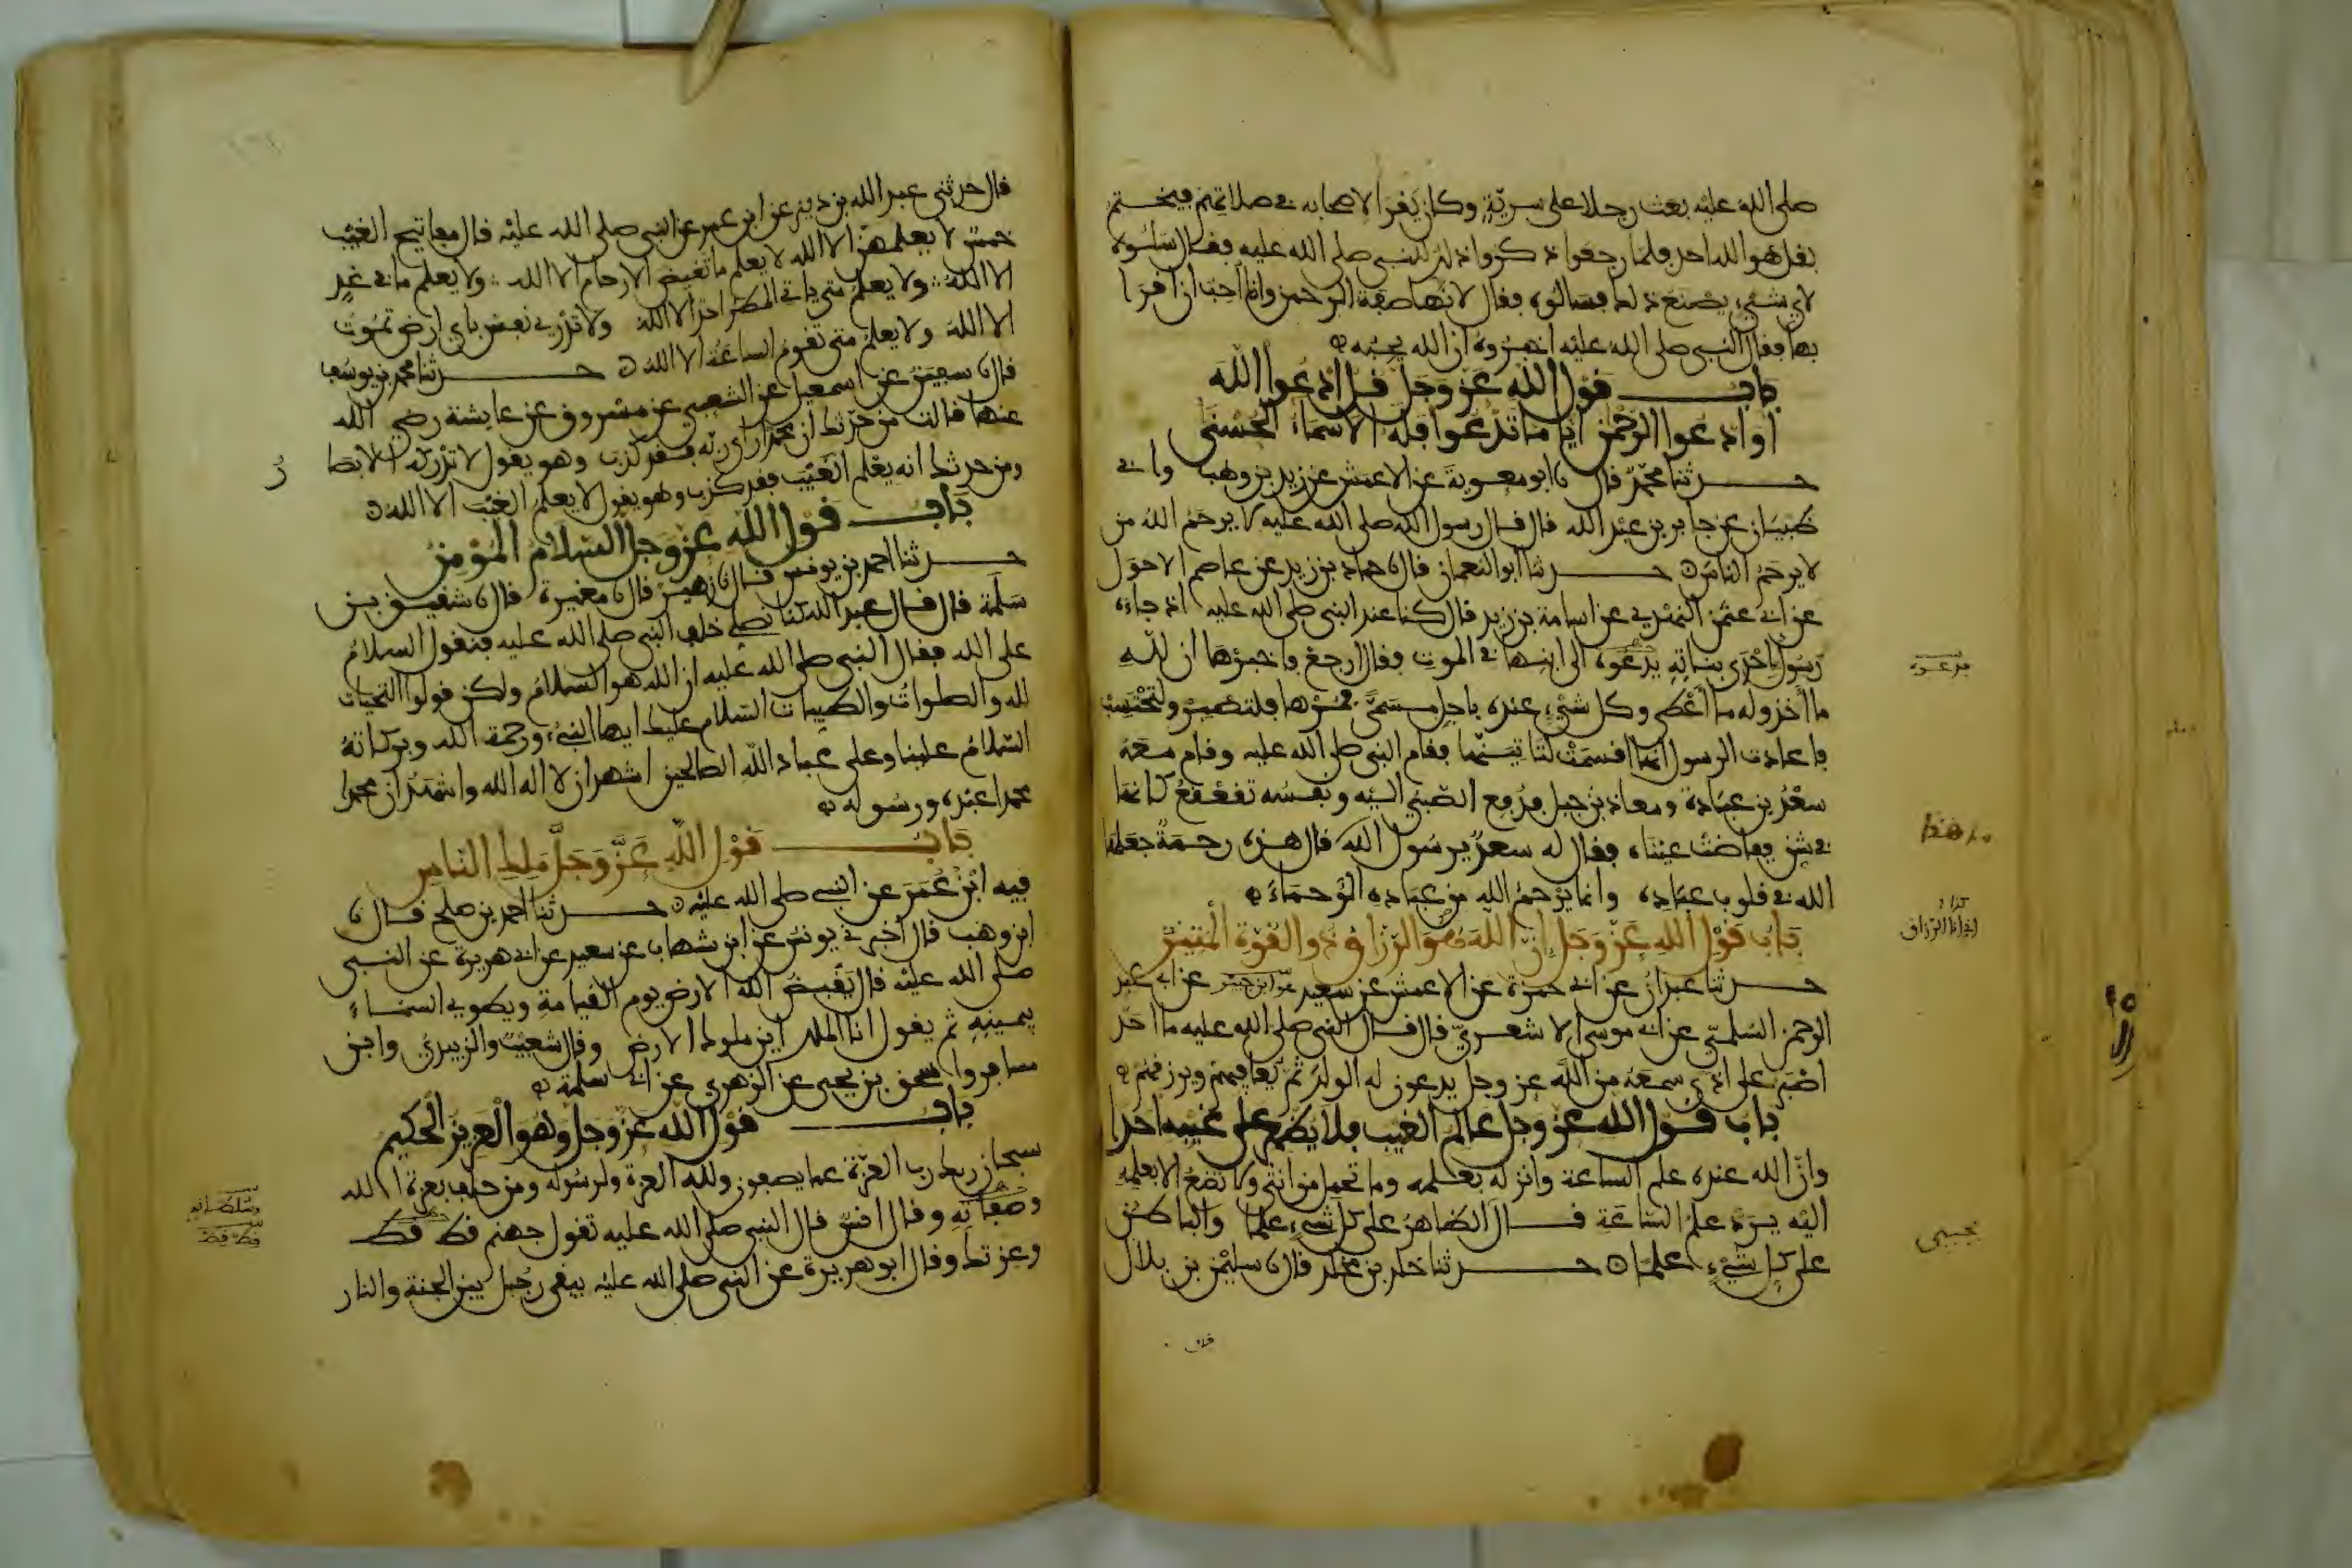 صلى الله عليه بعث رجلا على سرية وكان يقرا لاصحابه في صلاتهم فيختم
بقل هو الله احد فلما رجعوا ذكروا ذلك للنبي صلى الله عليه فقال سلوه
لاي شيء يصنع ذلك فسالوه فقال لانها صفة الرحمن وانا احب ان اقرا
بها فقال النبي صلى الله عليه اخبروه ان الله يحبه
باب قول الله عز وجل قل ادعوا الله
او ادعوا الرحمن ايا ما تدعوا فله الاسماء الحسنى
حدثنا محمد قال نا ابو معوية عن الاعمش عن زيد بن وهب وابي
ظبيان عن جابر بن عبد الله قال قال رسول الله صلى الله عليه لا يرحم الله من
لا يرحم الناس حدثنا ابو النعمان قال نا حماد بن زيد عن عاصم الاحول
عن ابي عثمن النهدي عن اسامة بن زيد قال كنا عند النبي صلى الله عليه اذ جاءه
رسول احدى بناته يدعوه الى ابنها في الموت فقال ارجع فاخبرها ان لله
ما اخذ وله ما اعطى وكل شيء عنده باجل مسمى فمرها فلتصبر ولتحتسب
فاعادت الرسول انها اقسمت لتاتينها فقام النبي صلى الله عليه وقام معه
سعد بن عبادة ومعاذ بن جبل فدفع الصبي اليه ونفسه تقعقع كانها
في شن ففاضت عيناه فقال له سعد يرسول الله قال هذه رحمة جعلها
الله في قلوب عباده وانما يرحم الله من عباده الرحماء
باب قول الله عز وجل ان الله هو الرزاق ذو القوة المتين
حدثنا عبدان عن ابي حمزة عن الاعمش عن سعيد هو ابن جبير عن ابي عبد
الرحمن السلمي عن ابي موسى الاشعري قال قال النبي صلى الله عليه ما احد
اصبر على اذى سمعه من الله عز وجل يدعون له الولد ثم يعافيهم ويرزقهم
باب قول الله عز وجل عالم الغيب فلا يظهر على غيبه احدا
وان الله عنده علم الساعة وانزله بعلمه وما تحمل من انثى ولا تضع الا بعلمه
اليه يرد علم الساعة قال الظاهر على كل شيء علما والباطن
على كل شيء علما حدثنا خلد بن مخلد قال نا سليمن بن بلال
قال
يدعوه
اني انا الرزاق
يحيى
قال حدثني عبد الله بن دينر عن ابن عمر عن النبي صلى الله عليه قال مفاتيح الغيب
خمس لا يعلمها الا الله لا يعلم ما تغيض الارحام الا الله ولا يعلم ما في غد
الا الله ولا يعلم متى ياتي المطر احد الا الله ولا تدري نفس باي ارض تموت
الا الله ولا يعلم متى تقوم الساعة الا الله حدثنا محمد بن يوسف
قال نا سفين عن اسمعيل عن الشعبي عن مسروق عن عايشة رضي الله
عنها قالت من حدثك ان محمدا راى ربه فقد كذب وهو يقول لا تدركه الابصا
ر
ومن حدثك انه يعلم الغيب فقد كذب وهو يقول لا يعلم الغيب الا الله
باب قول الله عز وجل السلام المؤمن
حدثنا احمد بن يونس قال نا زهير قال نا مغيرة قال نا شقيق بن
سلمة قال قال عبد الله كنا نصلي خلف النبي صلى الله عليه فنقول السلام
على الله فقال النبي صلى الله عليه ان الله هو السلام ولكن قولوا التحيات
لله والصلوات والطيبات السلام عليك ايها النبيء ورحمة الله وبركاته
السلام علينا وعلى عباد الله الصالحين اشهد ان لا اله الا الله واشهد ان محمدا
محمدا عبده ورسوله
باب قول الله عز وجل ملك الناس
فيه ابن عمر عن النبي صلى الله عليه حدثنا احمد بن صلح قال نا
ابن وهب قال اخبرني يونس عن ابن شهاب عن سعيد عن ابي هريرة عن النبي
صلى الله عليه قال يقبض الله الارض يوم القيامة ويطوي السماء
بيمينه ثم يقول انا الملك اين ملوك الارض وقال شعيب والزبيدي وابن
مسافر واسحق بن يحيى عن الزهري عن ابي سلمة
باب قول الله عز وجل وهو العزيز الحكيم
سبحان ربك رب العزة عما يصفون ولله العزة ولرسوله ومن حلف بعزة الله
وصفاته وقال انس قال النبي صلى الله عليه تقول جهنم قط قط
وعزتك وقال ابو هريرة عن النبي صلى الله عليه يبقى رجل بين الجنة والنار
وسلطانه
قط قط